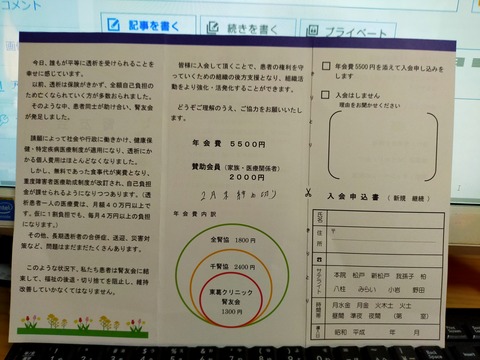 コメント
記事を書く
続きを書く
プライベート
今日、誰もが平等に透析を受けられることを
幸せに感じています。
以前、透析は保険がきかず、全額自己負担の
ために亡くなられていく方が多数おられました。
そのような中、患者同士が助け合い、腎友会
が発足しました。
請願によって社会や行政に働きかけ、健康保
健・特定疾病医療制度が適用になり、透析にか
かる個人費用はほとんどなくなりました。
しかし、無料であった食事代が実費となり、
重度障害者医療助成制度が改訂され、自己負担
金が課せられるようになりつつあります。(透
析患者一人の医療費は、月額40万円以上で
す。仮に1割負担でも、毎月4万円以上の負担
になります。)
その他、長期透析者の合併症、送迎、災害対
策など、問題はまだまだたくさんあります。
このような状況下、私たち患者は腎友会に結
束して、福祉の後退・切り捨てを阻止し、維持
改善していかなくてはなりません。
皆様に入会して頂くことで、患者の権利を守
っていくための組織の後方支援となり、組織活
動をより強化・活発化することができます。
どうぞご理解のうえ、ご協力をお願いいたし
ます。
年会費 5500円
賛助会員(家族・医療関係者)
2000円
2月末締め切り
年会費内訳
全腎協 1800円
千腎協 2400円
東葛クリニック
腎友会
1300円
年会費5500円を添えて入会申し込みをし
ます
入会はしません
理由をお聞かせください
入会申込書(新規 継続)
氏名
住所
〒
サテライト
本院 松戸 新松戸 我孫子 柏
八柱 みらい 小岩 野田
時間帯
月水金 月金 火木土 火土
昼間 準夜 夜間 (第 室)
導入日
昭和 平成 年 月